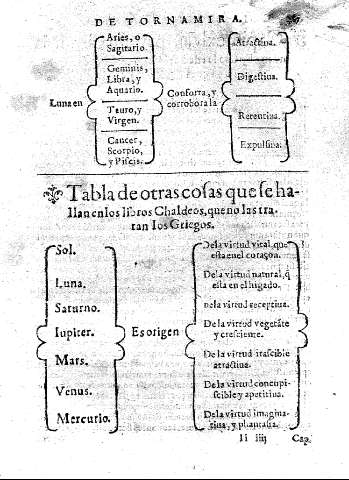 DE TORNAMIRA.
Luna en
Aries, o
Sagitario.
Geminis,
Libra, y
Aquario.
Tauro, y
Virgen.
Cancer,
Scorpio,
y Piscis.
Conforra, y
corrobora la
Atractiua.
Digestiua.
Retentiua.
Expulsiua.
Tabla de otras cosas que se ha-
llan en los libros Chaldeos, que no las tra-
tan los Griegos.
Sol.
Luna.
Saturno.
Iupiter.
Mars.
Venus.
Mercurio.
Es origen
De la virtud vital, que
esta en el coraçon.
De la virtud natural, q̃
esta en el higado.
De la virtud receptiua.
De la virtud vegetãte
y cresciente.
De la virtud irascible
atractiua.
De la virtud concupi-
scible y apetitiua.
De la virtud imagina-
tiua, y phantasia.
Ii iiij Cap.